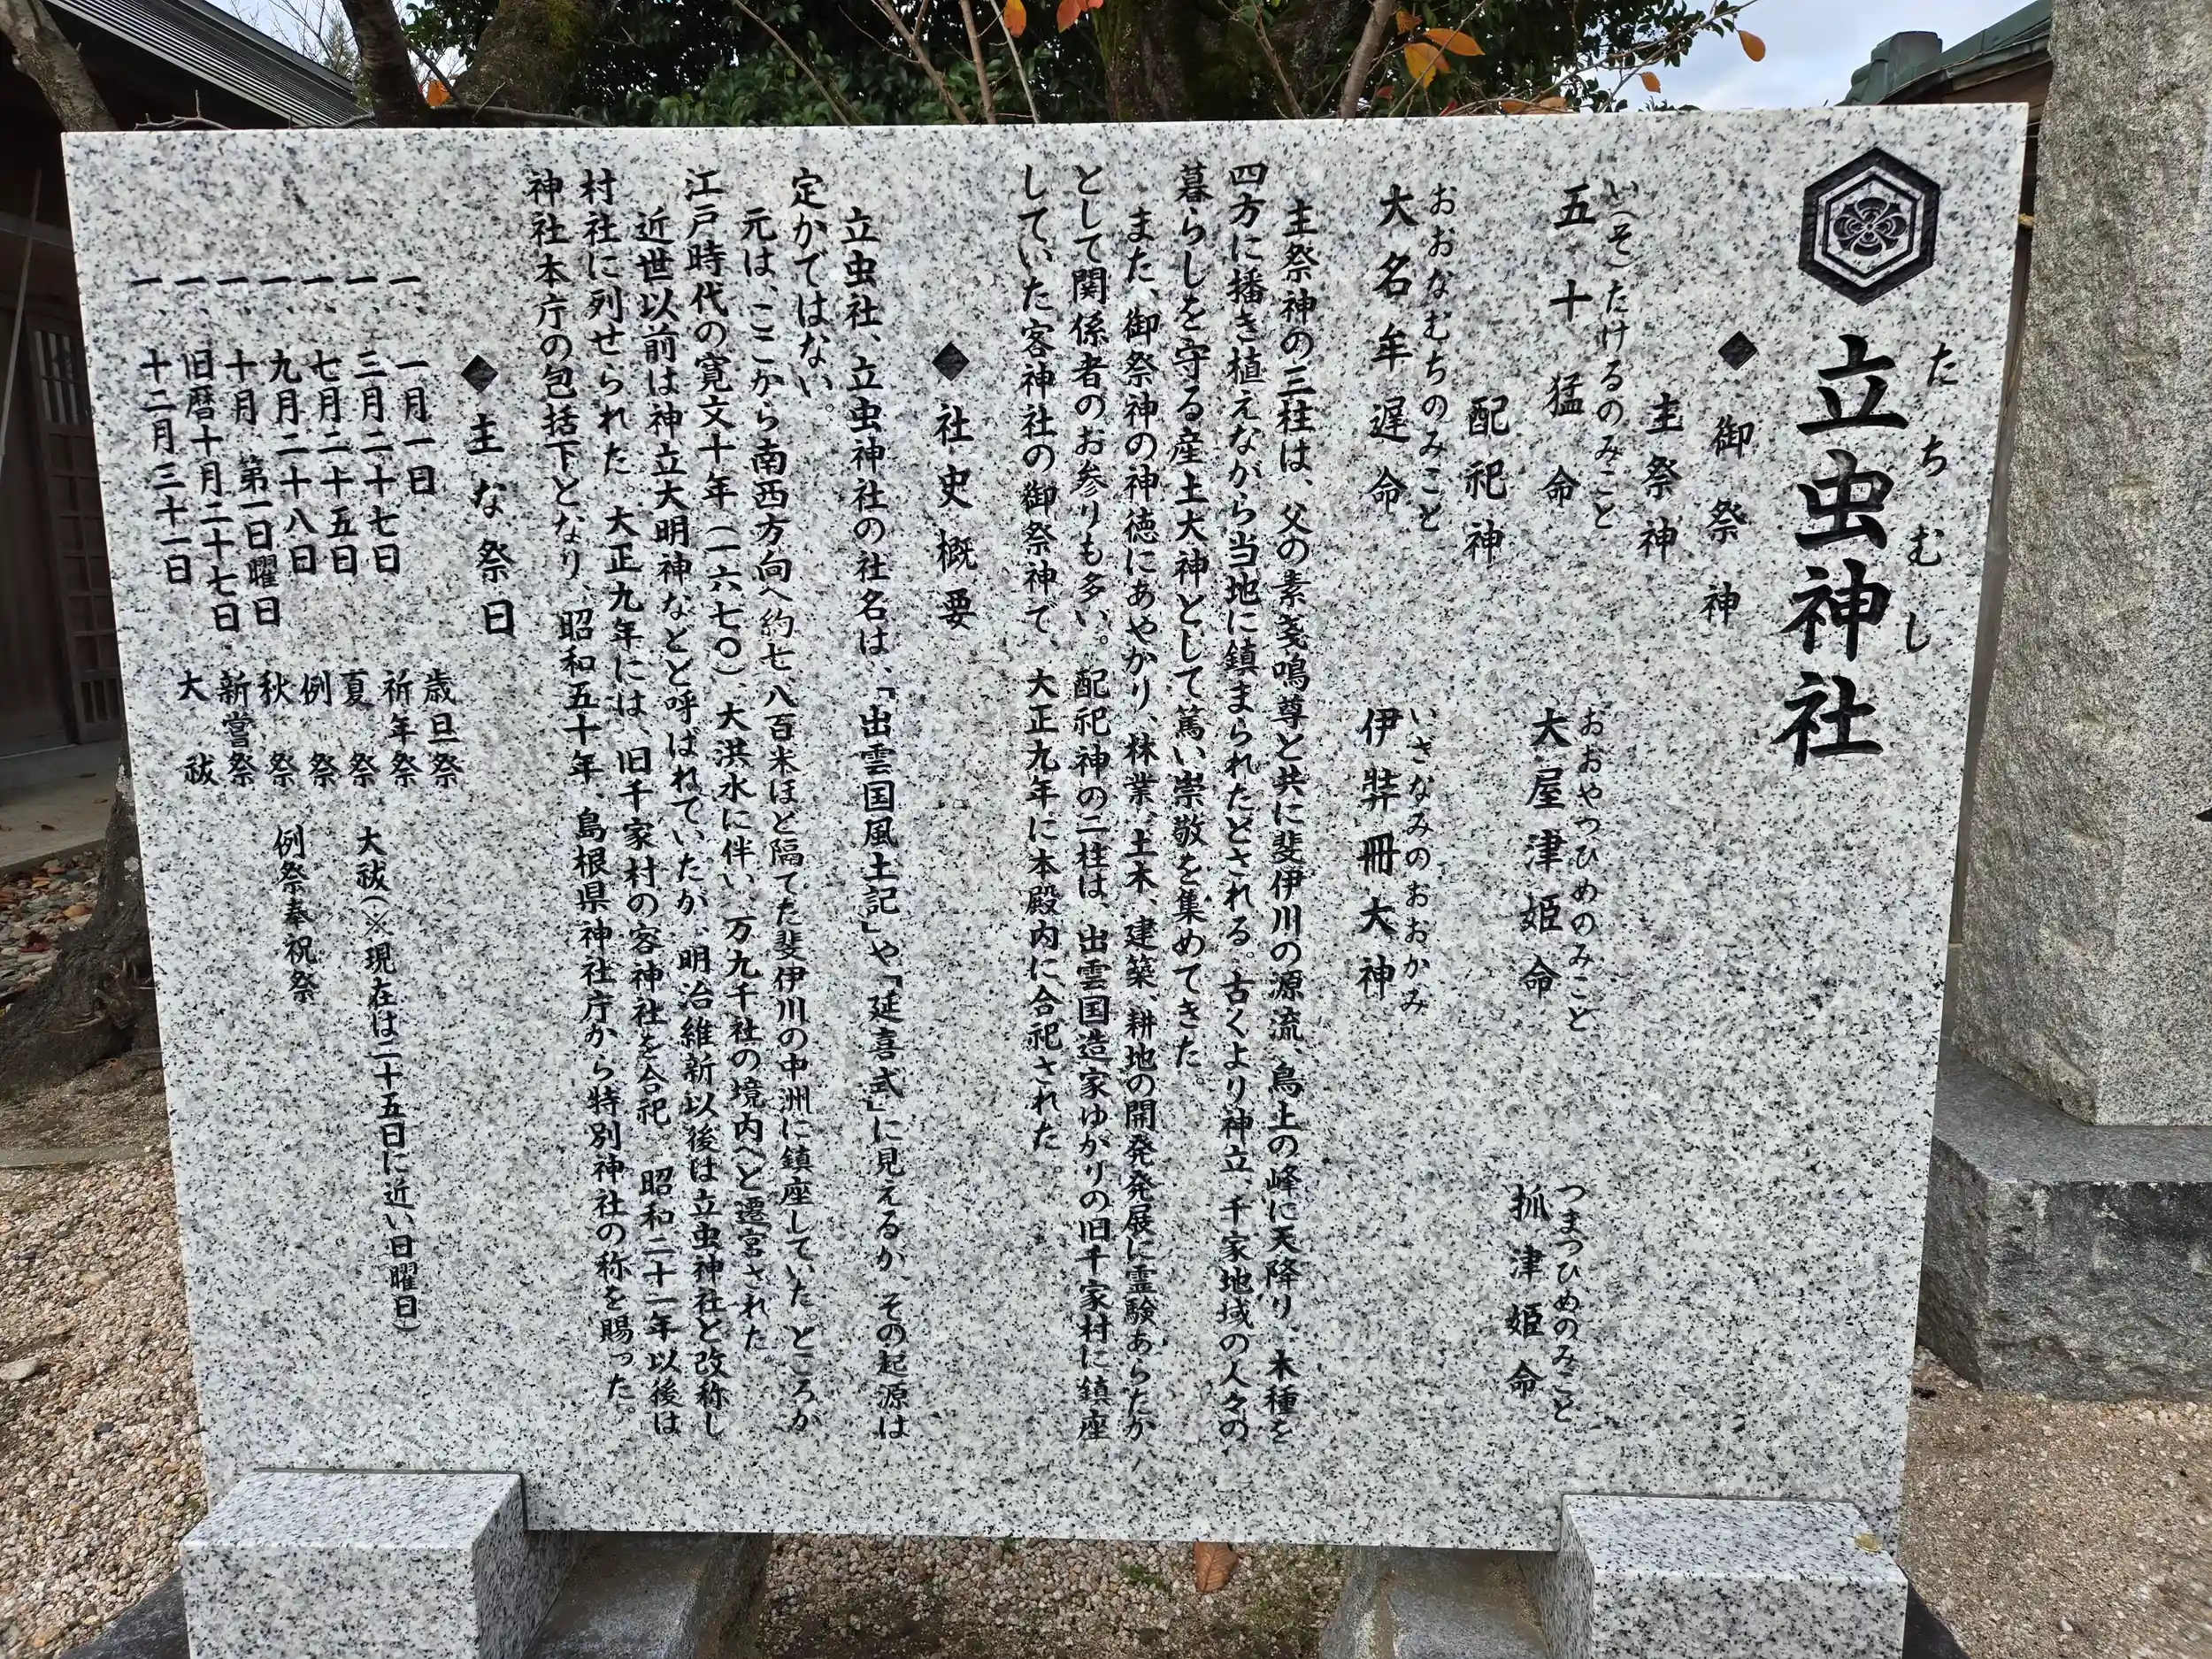 立虫神社
たちむし
◆御祭神
主祭神
い(そ)たけるのみこと　おおやつひめのみこと　つまつひめのみこと
五十猛命　大屋津姫命　抓津姫命
配祀神
おおなむちのみこと　いざなみのおおかみ
大名牟遅命　伊弉冊大神
主祭神の三柱は、父の素戔嗚尊と共に斐伊川の源流、鳥上の峰に天降り、木種を
四方に播き植えながら当地に鎮まられたとされる。古くより神立、千家地域の人々の
暮らしを守る産土大神として篤い崇敬を集めてきた。
また、御祭神の神徳にあやかり、林業、土木、建築、耕地の開発発展に霊験あらたか
として関係者のお参りも多い。配祀神の二柱は、出雲国造家ゆかりの旧千家村に鎮座
していた客神社の御祭神で、大正九年に本殿内に合祀された。
◆社史概要
立虫社、立虫神社の社名は、「出雲国風土記」や「延喜式」に見えるが、その起源は
定かではない。
元は、ここから南西方向へ約七、八百米ほど隔てた斐伊川の中洲に鎮座していた。ところが
江戸時代の寛文十年(一六七〇)、大洪水に伴い、万九千社の境内へと遷宮された。
近世以前は神立大明神などと呼ばれていたが、明治維新以後は立虫神社と改称し
村社に列せられた。大正九年には、旧千家村の客神社を合祀。昭和二十一年以後は
神社本庁の包括下となり、昭和五十年、島根県神社庁から特別神社の称を賜った。
◆主な祭日
一、一月一日　歳旦祭
一、三月二十七日　祈年祭
一、七月二十五日　夏祭　大祓(※現在は二十五日に近い日曜日)
一、九月二十八日　例祭
一、十月　第一日曜日　秋祭　例祭奉祝祭
一、旧暦十月二十七日　新嘗祭
一、十二月三十一日　大祓